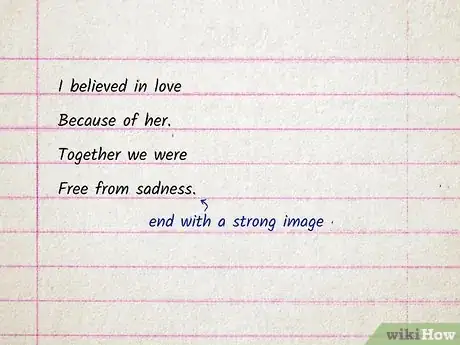 I believed in love
Because of her.
Together we were
Free from sadness.
end with a strong image
wikiHow